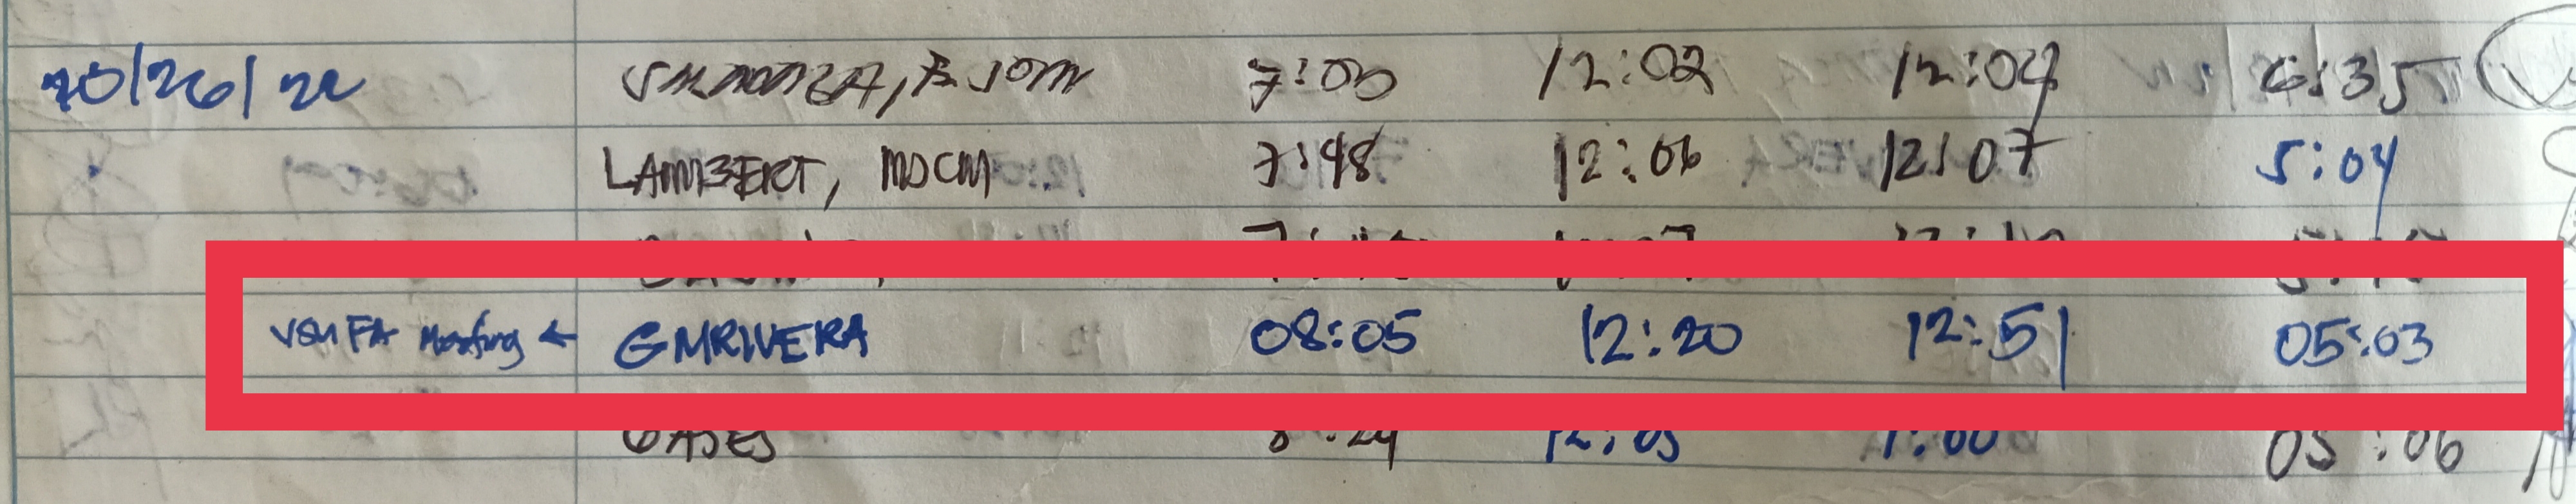 10/26/22 7:03 12:02 12:04 6:35
LAMBERT, MDCM 7:48 12:06 12:07 5:04
VSUFA Meeting ← GMRIVERA 08:05 12:20 12:51 05:03
OASES 8:24 12:05 1:00 05:06